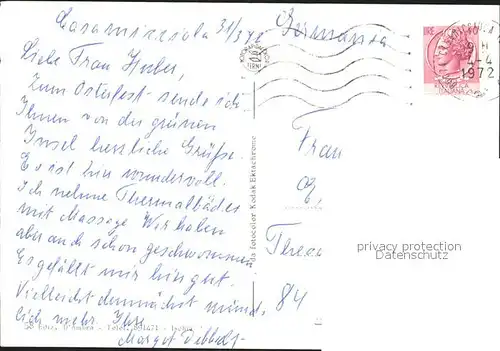 Casamicciola 31/3 72
Germania
LIRE 40
9-H
4-4
1972
Liebe Frau Huber,
zum Osterfest sende ich
Ihnen von der grünen
Insel herzliche Grüße.
Es ist hier wundervoll.
Ich nehme Thermalbäder
mit Massage. Wir haben
aber auch schon geschwommen
Es gefällt mir hier gut.
Vielleicht demnächst münd-
lich mehr. Ihre
Margot
da fotocolor Kodak Ektachrome
Frau
84
privacy protection
Datenschutz